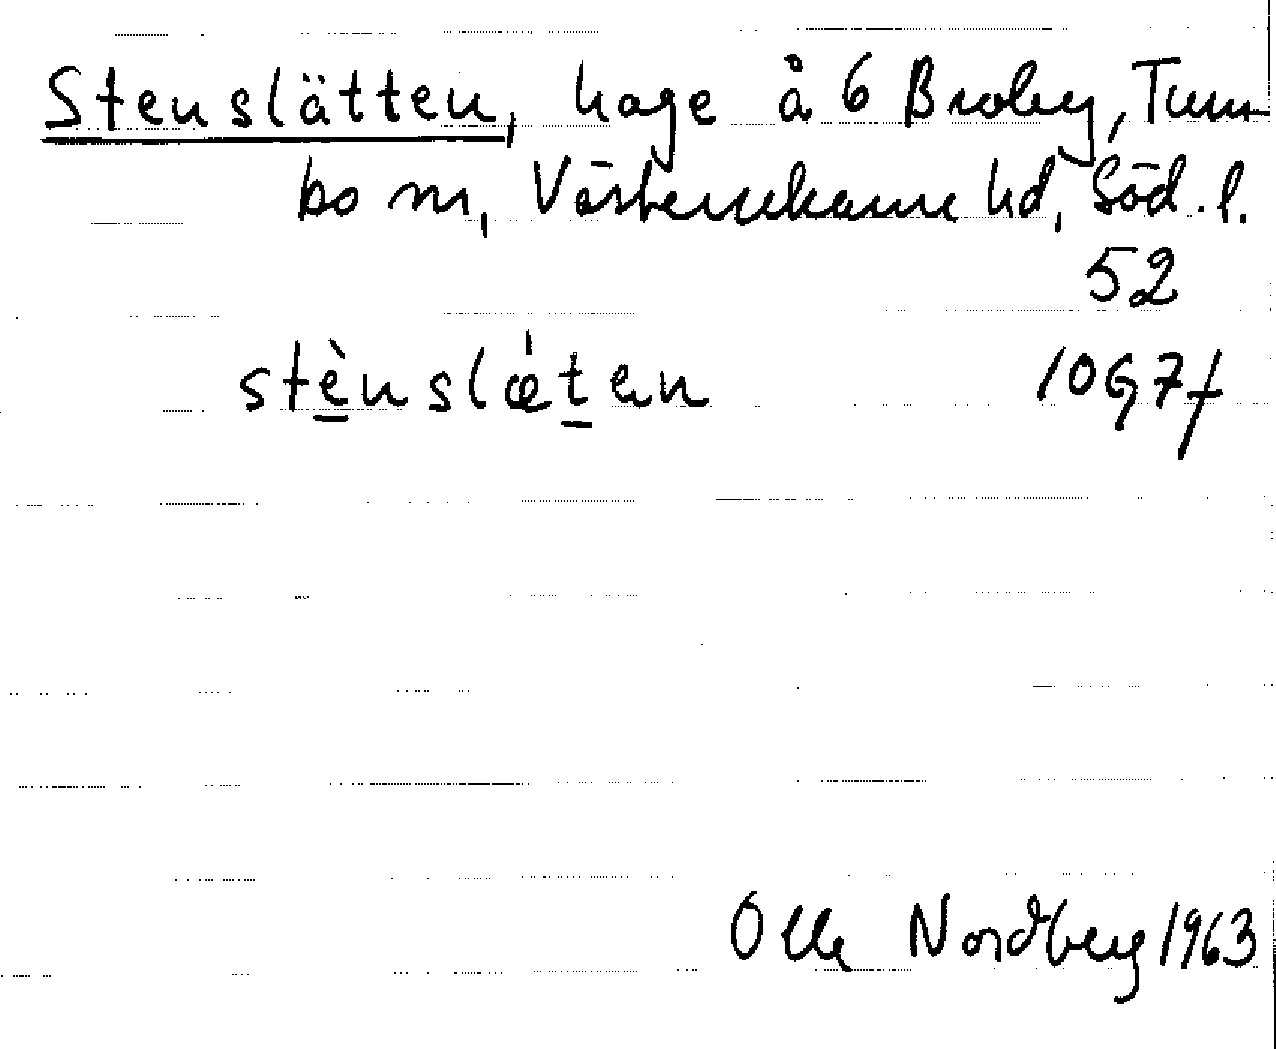 Stenslätten, hage å 6 Broby, Tum-
bo sn, Västerrekarne hd, Söd. l.
52
stènslǽten
10G7f
Olle Nordberg 1963